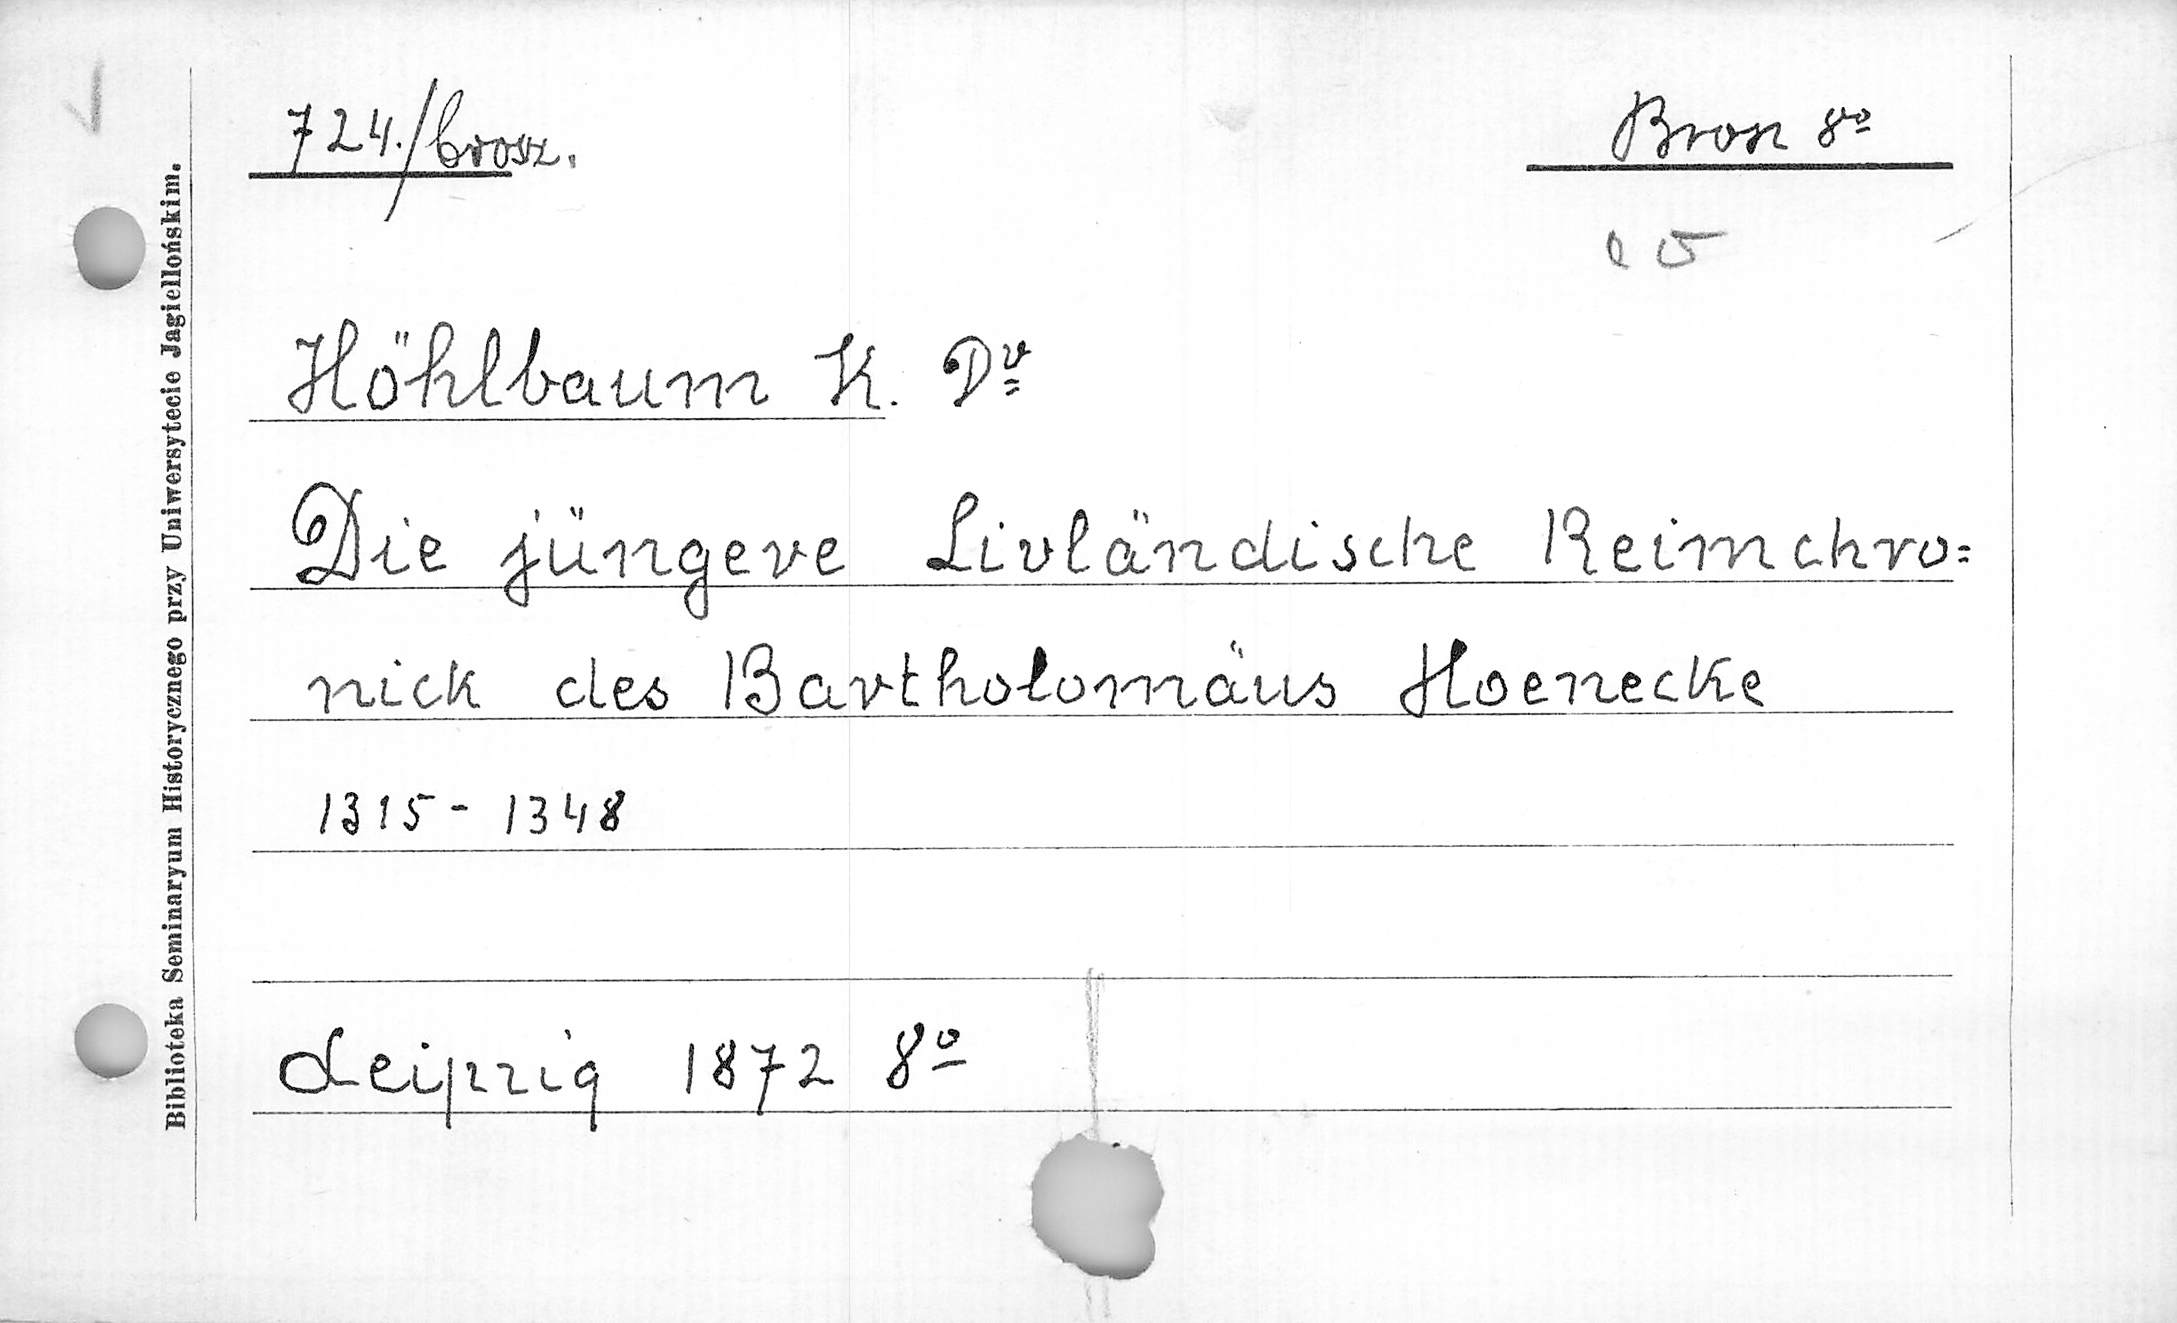 724./brosz.
Brosz 8º
Höhlbaum K. Dr
Die jüngere Livländische Reimchro=
nick des Bartholomäus Hoenecke
1315 - 1348
Leipzig 1872 8º
Biblioteka Seminaryum Historycznego przy Uniwersytecie Jagiellońskim.